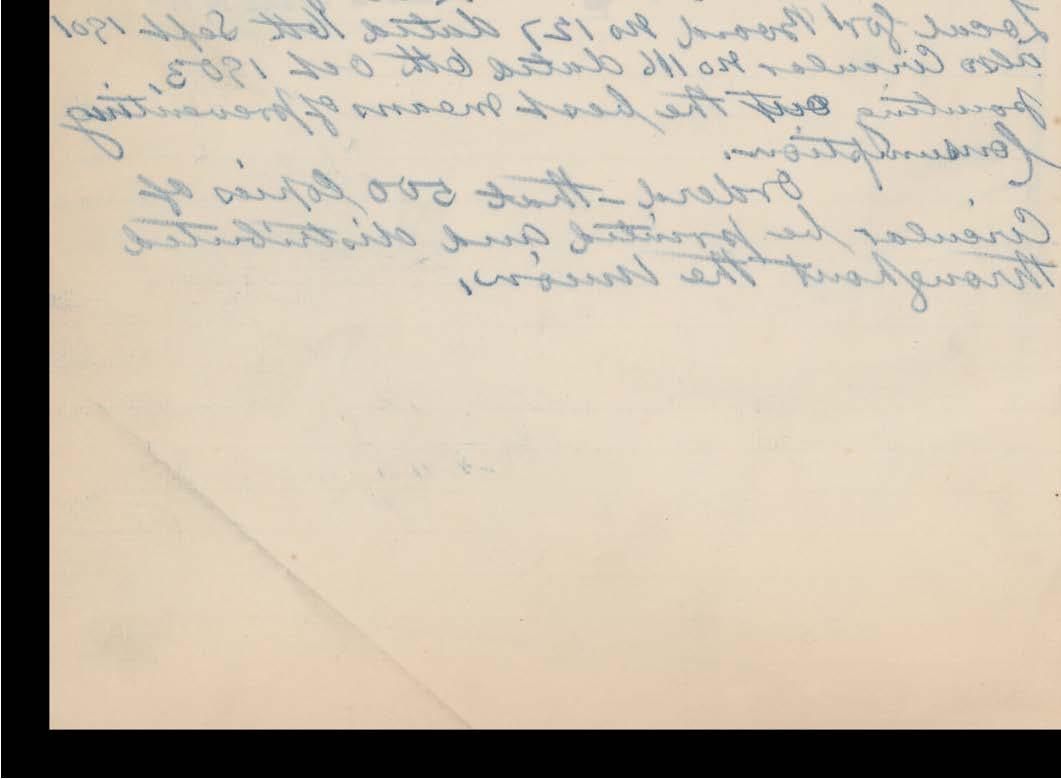 Local Govt Board, No 127 dated 10th Sept 1901
also Circular No 116 dated 6th Oct 1903,
pointing out the best means of preventing
Consumption.
Ordered - that 500 Copies of
Circular be printed and distributed
throughout the Union,